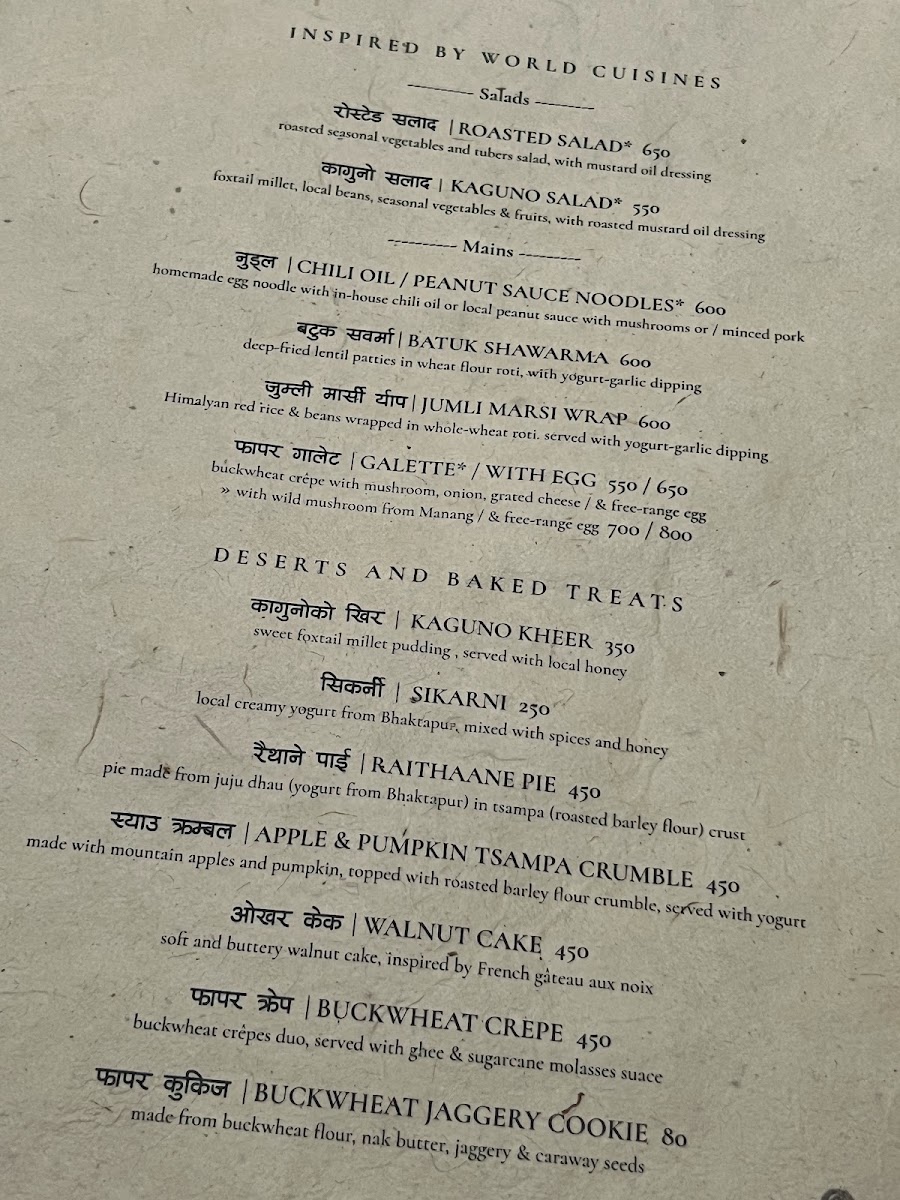 INSPIRED BY WORLD CUISINES
--------- Salads --------
रोस्टेड सलाद | ROASTED SALAD* 650
roasted seasonal vegetables and tubers salad, with mustard oil dressing
कागुनो सलाद | KAGUNO SALAD* 550
foxtail millet, local beans, seasonal vegetables & fruits, with roasted mustard oil dressing
--------- Mains --------
नुडल | CHILI OIL / PEANUT SAUCE NOODLES* 600
homemade egg noodle with in-house chili oil or local peanut sauce with mushrooms or / minced pork
बटुक सवर्मा | BATUK SHAWARMA 600
deep-fried lentil patties in wheat flour roti, with yogurt-garlic dipping
जुम्ली मार्सी र्याप | JUMLI MARSI WRAP 600
Himalyan red rice & beans wrapped in whole-wheat roti. served with yogurt-garlic dipping
फापर गालेट | GALETTE* / WITH EGG 550 / 650
buckwheat crêpe with mushroom, onion, grated cheese / & free-range egg
» with wild mushroom from Manang / & free-range egg 700 / 800
DESERTS AND BAKED TREATS
कागुनोको खिर | KAGUNO KHEER 350
sweet foxtail millet pudding , served with local honey
सिकर्नी | SIKARNI 250
local creamy yogurt from Bhaktapur, mixed with spices and honey
रैथाने पाई | RAITHAANE PIE 450
pie made from juju dhau (yogurt from Bhaktapur) in tsampa (roasted barley flour) crust
स्याउ क्रम्बल | APPLE & PUMPKIN TSAMPA CRUMBLE 450
made with mountain apples and pumpkin, topped with roasted barley flour crumble, served with yogurt
ओखर केक | WALNUT CAKE 450
soft and buttery walnut cake, inspired by French gâteau aux noix
फापर क्रेप | BUCKWHEAT CRÊPE 450
buckwheat crêpes duo, served with ghee & sugarcane molasses suace
फापर कुकिज | BUCKWHEAT JAGGERY COOKIE 80
made from buckwheat flour, nak butter, jaggery & caraway seeds